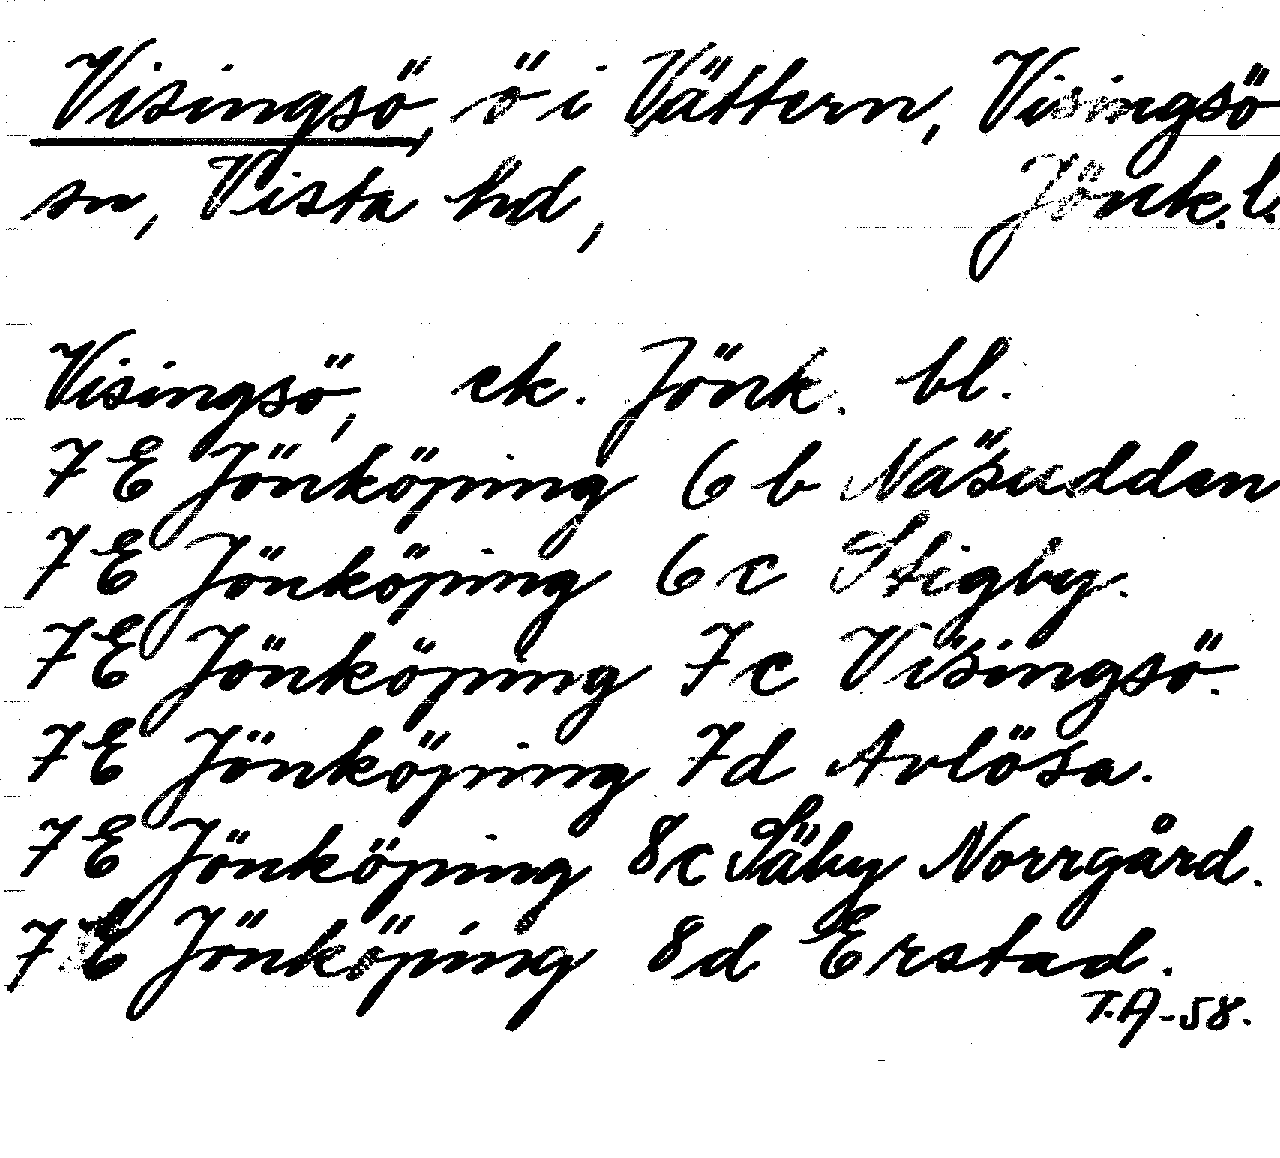 Visingsö, ö i Vättern, Visingsö
sn, Vista hd, Jönk. l.
Visingsö, ek. Jönk. bl.
7E Jönköping 6 b Näsudden
7E Jönköping 6 c Stigby.
7E Jönköping 7c Visingsö.
7E Jönköping 7d Avlösa.
7E Jönköping 8c Säby Norrgård.
7E Jönköping 8d Erstad.
T.A-58.